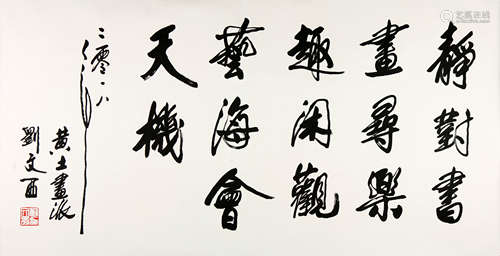 靜對書
畫尋樂
趣閑觀
藝海會
天機
二零一八年
黄土畫派
劉文西